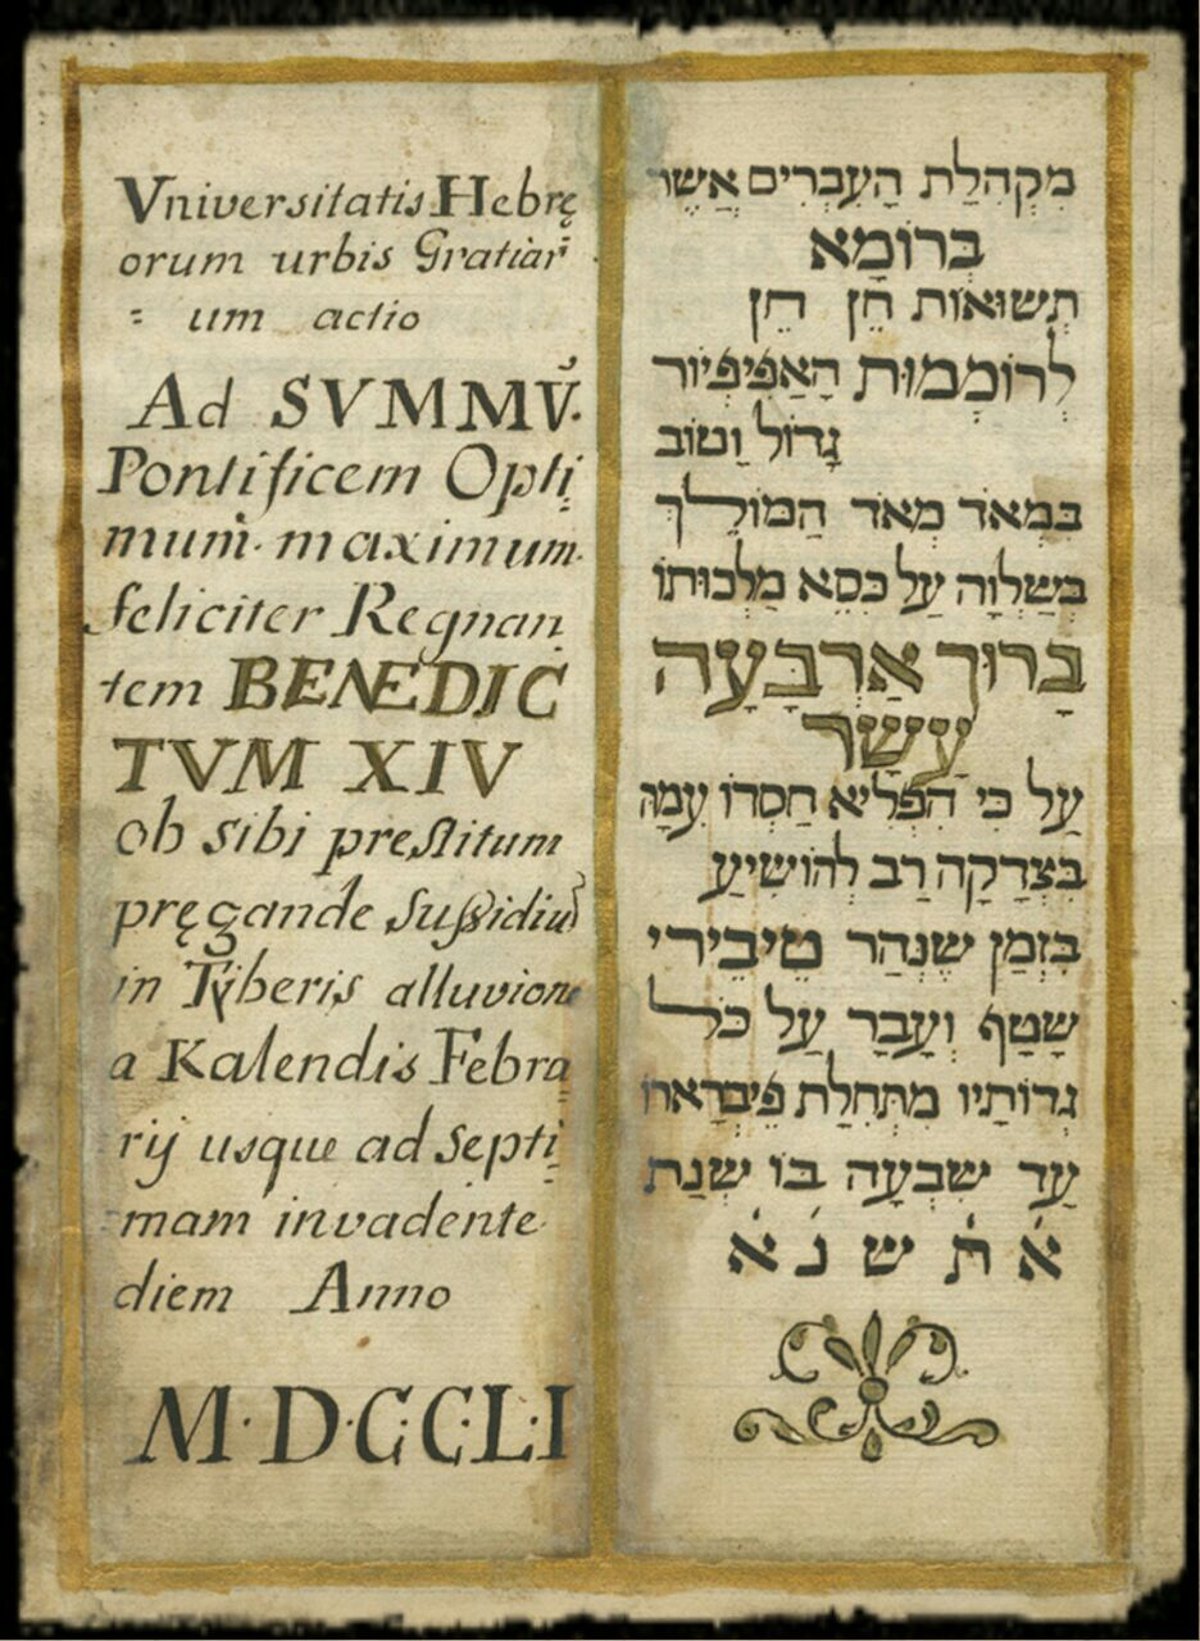 Vniversitatis Hebrę
orum urbis Gratiar
= um actio
Ad SVMMV̆.
Pontificem Opti
mum. maximum.
feliciter Regnan
tem BENEDIC
TVM XIV
ob sibi prestitum
pręgande sussidiu
in Tyberis alluvione
a Kalendis Febra
rij usque ad septi
mam invadente
diem Anno
M·D·C·C·L·I
מִקְהִלַת הָעִבְרִים אֲשֶׁר
בְּרוֹמָא
תְּשׁוּאוֹת חֵן חֵן
לְרוֹמְמוּת הָאַפִּיפְיוֹר
גָדוֹל וָטוֹב
בִּמְאֹד מְאֹד הַמּוֹלֵךְ
בְּשַׁלְוָה עַל כִּסֵא מַלְכוּתוֹ
בָּרוּךְ אַרְבָּעָה
עָשָׂר
עַל כִּי הִפְלִיא חַסְדוֹ עִמָהּ
בִּצְדָקָה רַב לְהוֹשִׁיעַ
בִּזְמַן שֶׁנְּהַר טֵיבֵירִי
שָׁטַף וְעָבַר עַל כֹּל
גְדוֹתָיו מִתְּחִלַת פֵיבְרָארוֹ
עַד שִׁבְעָה בּוֹ שְׁנַת
אׁ תׁ ש נׁ אׁ